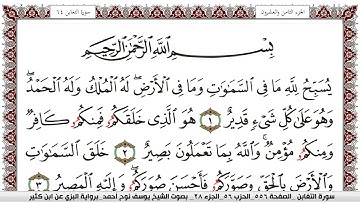 الجزء الثامن والعشرون
سورة التغابن ٦٤
بِسْمِ اللَّهِ الرَّحْمَٰنِ الرَّحِيمِ
يُسَبِّحُ لِلَّهِ مَا فِي السَّمَٰوَٰتِ وَمَا فِي الْأَرْضِ لَهُ الْمُلْكُ وَلَهُ الْحَمْدُ
وَهُوَ عَلَىٰ كُلِّ شَيْءٍ قَدِيرٌ ١ هُوَ الَّذِي خَلَقَكُمُ فَمِنكُمُ كَافِرٌ
وَمِنكُمُ مُؤْمِنٌ وَاللَّهُ بِمَا تَعْمَلُونَ بَصِيرٌ ٢ خَلَقَ السَّمَٰوَٰتِ
وَالْأَرْضَ بِالْحَقِّ وَصَوَّرَكُمُ فَأَحْسَنَ صُوَرَكُمُ وَإِلَيْهِ الْمَصِيرُ ٣
سورة التغابن الصفحة ٥٥٦ الحزب ٥٦ الجزء ٢٨ بصوت الشيخ يوسف نوح احمد برواية البزي عن ابن كثير